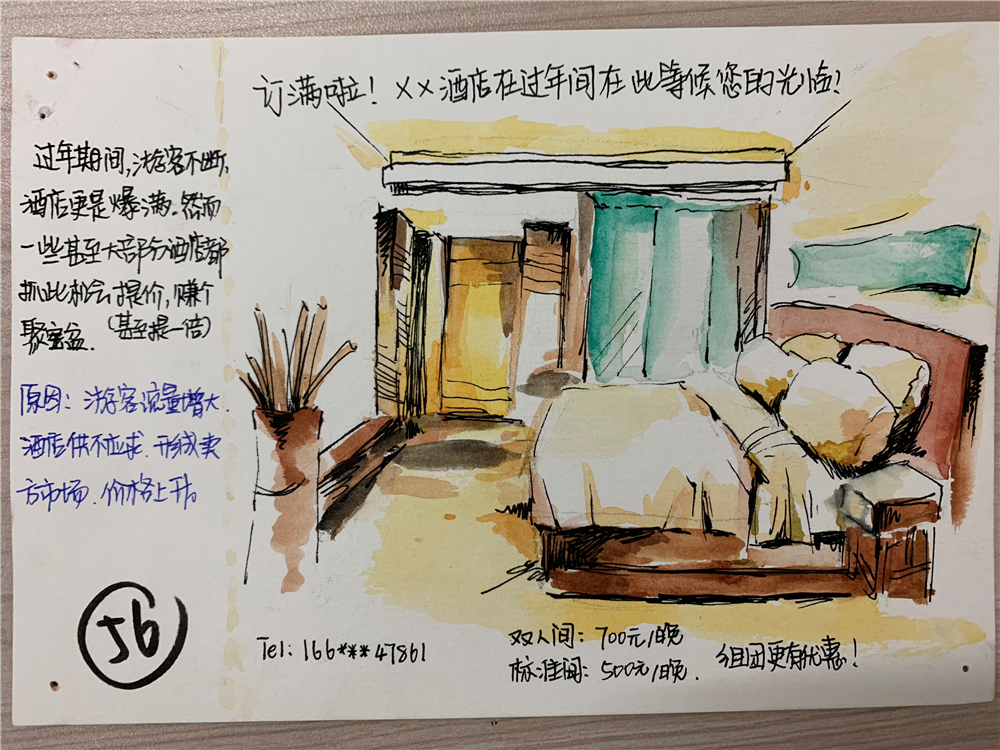 订满啦！××酒店在过年间在此等候您的光临！
过年期间，游客不断，
酒店更是爆满。然而
一些甚至大部分酒店都
抓此机会提价，赚个
聚宝盆．（甚至提一倍）
原因：游客流量增大．
酒店供不应求．形成卖
方市场．价格上升。
56
Tel：166***47861
双人间：700元/晚
标准间：500元/晚．
组团更有优惠！